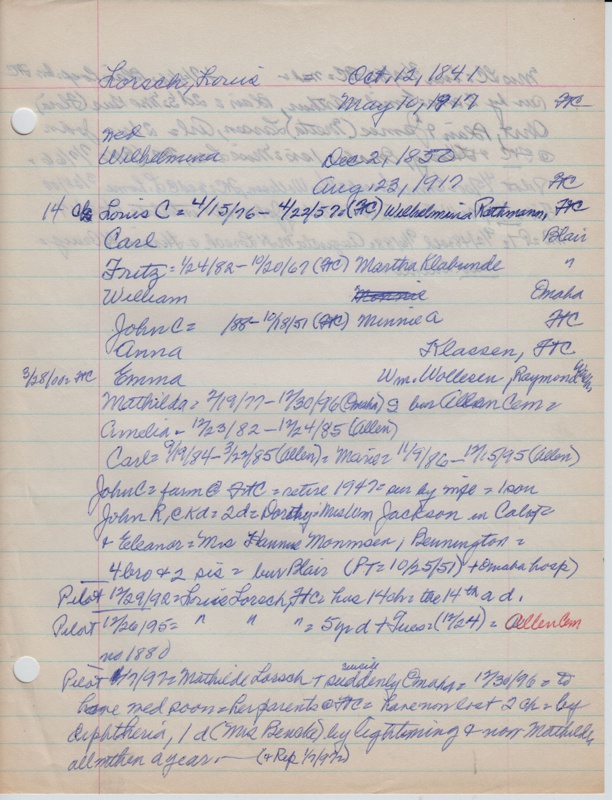 Lorsch, Louis = Oct. 12, 1841
May 10, 1917 FC
med
Wilhelmina Dec 2, 1850
Aug. 23, 1917 FC
14 ch Louis C = 4/15/76 - 4/22/57 (FC) Wilhelmina Rathmann, FC
Carl Blair
Fritz = 1/24/82 - 10/20/67 (FC) Martha Klabunde "
William Omaha
John C = /88 - 10/18/51 (FC) Minnie A FC
Anna Klassen, FC
3/28/00 = FC Emma Wm. Wollesen, Raymond
Mathilda = 2/19/77 - 12/30/96 (Omaha) bur Allen Cem =
Amelia - 12/23/82 - 12/24/85 (Allen)
Carl = 9/19/84 - 3/22/85 (Allen) = 11/9/86 - 12/15/95 (Allen)
John C = farm @ FC = retire 1947 = sur by wife = 1 son
John R, 2d = Dorothy = Mrs Wm Jackson in Calif
+ Eleanor = Mrs Hannus Mommsen, Bennington =
4 bro + 2 sis = bur Blair (PT = 10/25/51) + Omaha hosp)
Pilot 12/29/92 = Louis Lorsch, FC = has 14 ch = the 14th a d.
Pilot 12/26/95 = " " " = 5 yr d + Tues = (12/24) = Allen Cem
no 1880
Pilot 1/7/97 = Mathilde Lorsch + suddenly suicide Omaha = 12/30/96 = to
have med soon = her parents @ FC = have now lost 2 ch = by
diphtheria, 1 d (Mrs Benske) by lightning & now Mathilde,
all within a year. (+ Rep 1/7/97)